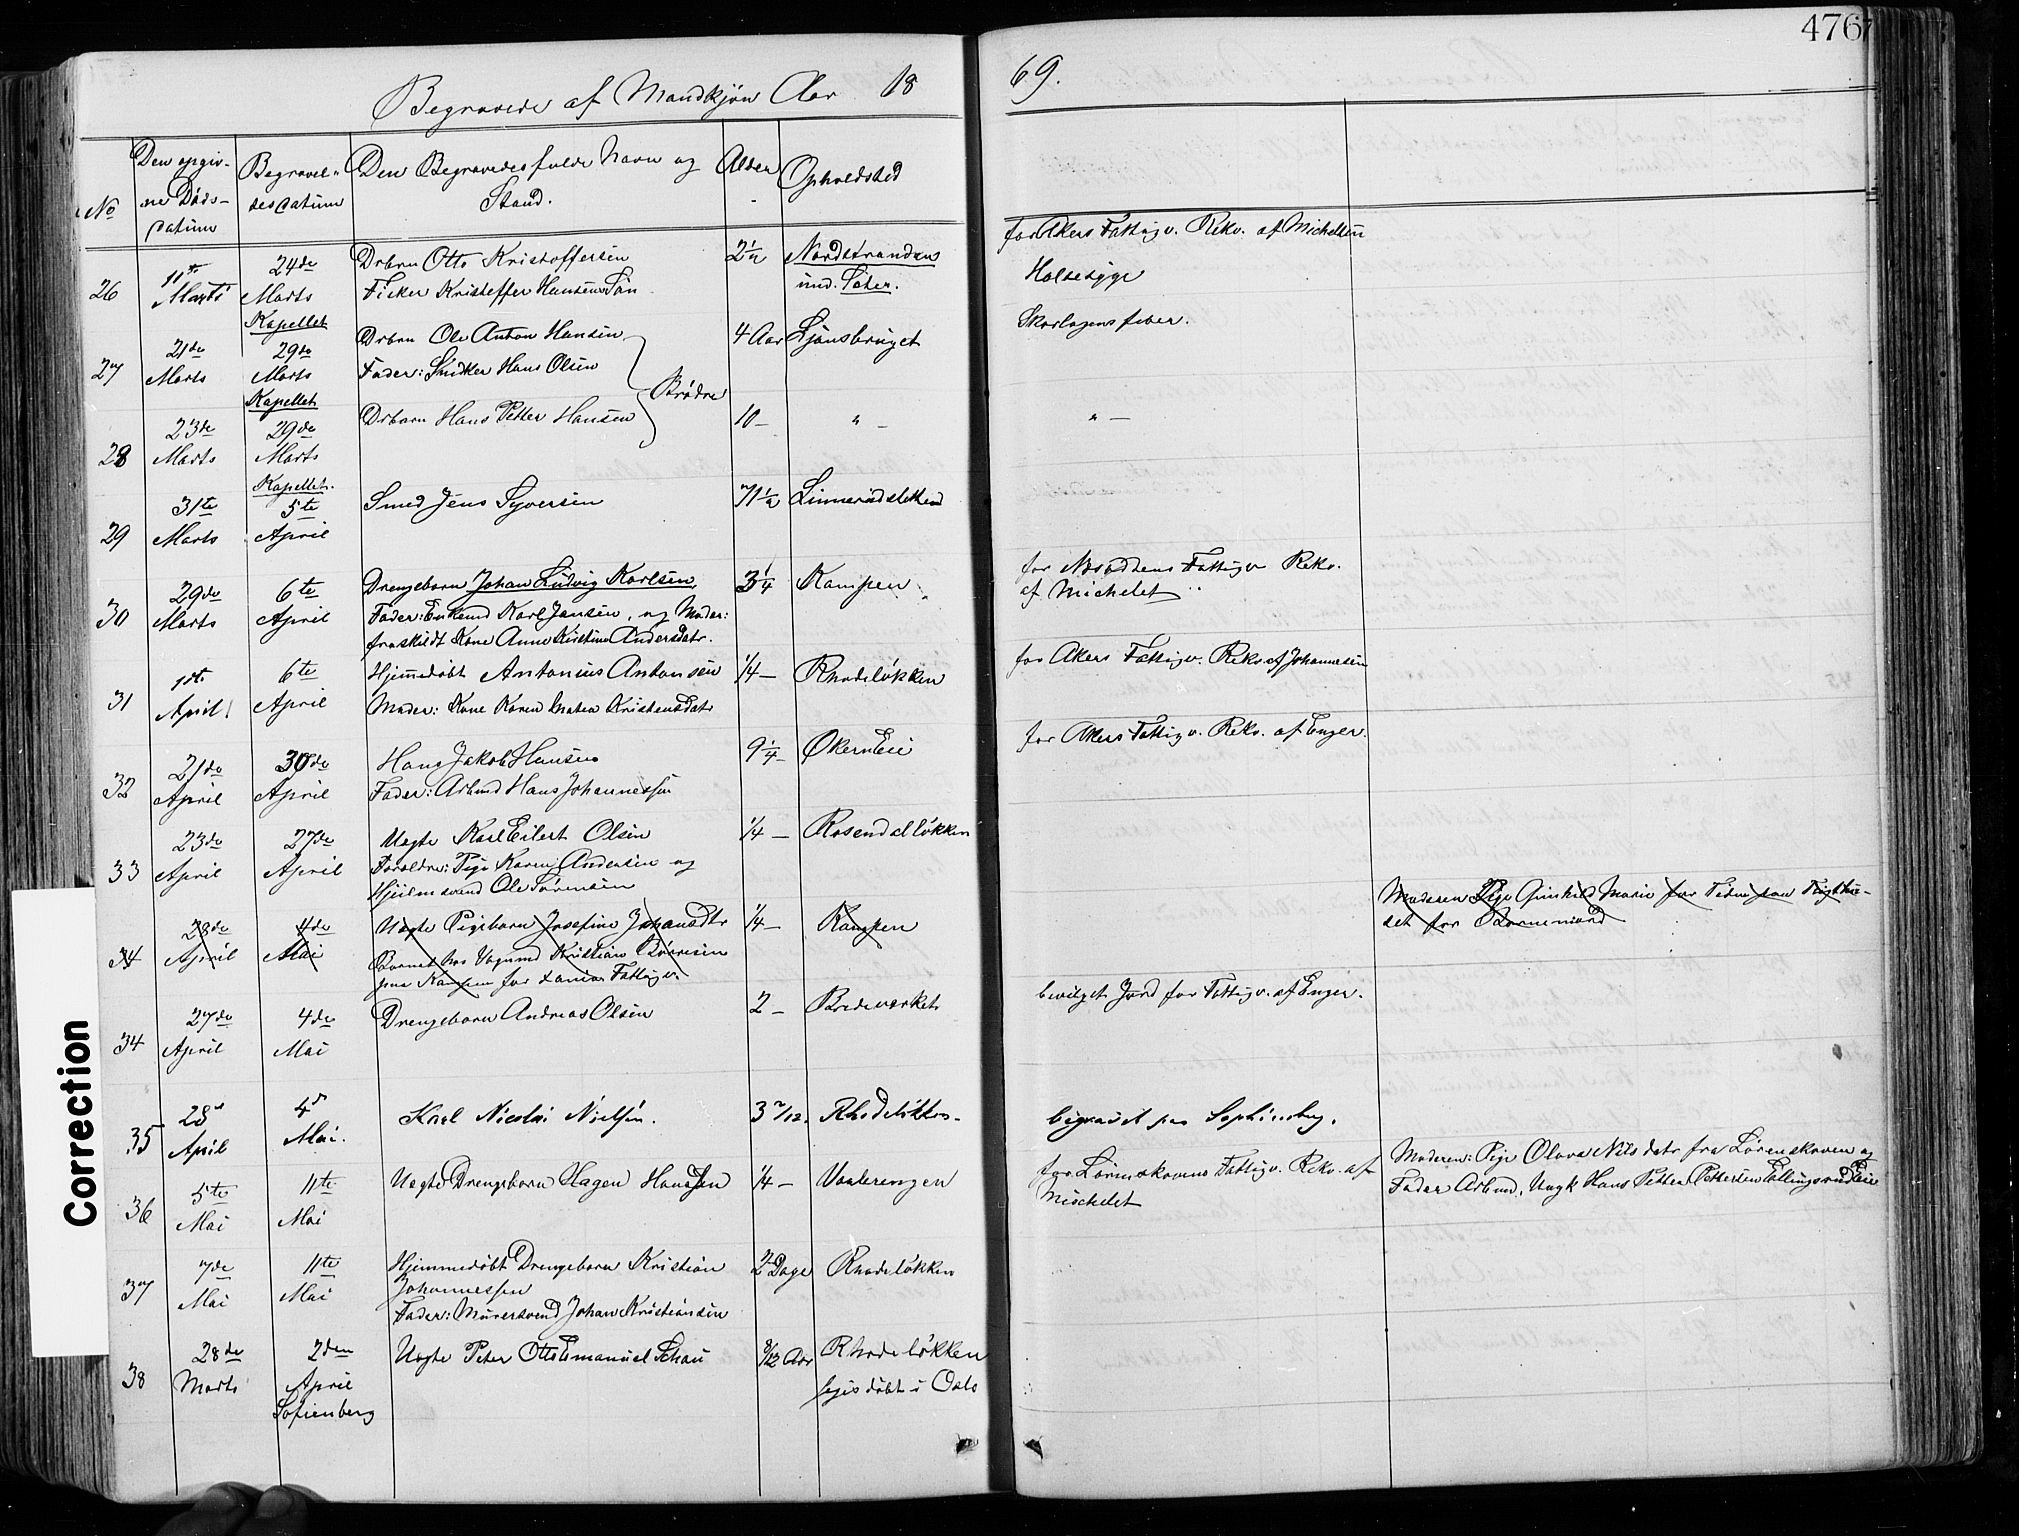 476
Begravede af Mandkjøn Aar 18
69.
No
Den opgiv-
ne Døds-
datum
Begravel-
sesdatum
Den Begravedes fulde Navn og
Stand.
Alder
Opholdsted
26
11te
Marts
24de
Marts
Drbrn Otto Kristoffersen
Fisker Kristoffer Hansens Søn
2½
Nordstrandens
und. Sæter.
for Akers Fattigv. Rekv. af Michelsen
Halsesyge
27
21de
Marts
Kapellet
29de
Marts
Drbrn Ole Anton Hansen
Fader: Snidker Hans Olsen
Brødre
4 Aar
Ljansbruget
Skarlagensfeber.
28
23de
Marts
Kapellet
29de
Marts
Drbarn Hans Petter Hansen
10 —
" —
" —
29
31te
Marts
Kapellet.
5te
April
Smed Jens Syversen
71½
Linnerudsletten
30
29de
Marts
6te
April
Drengebarn Johan Ludvig Karlsen
Fader: Enkemd Karl Jansen, og Moder:
fraskildt Kone Anne Kirstine Andersdatr.
3¼
Kampen
for Nesoddens Fattigv Rekv.
af Michelet
31
1ste
April
6te
April
Hjemmedøbt Antonius Antonsen
Moder: Kone Karen Matea Kristensdatr
¼ —
Rhodeløkken
for Akers Fattigv. Rekv. af Johannesen
32
21de
April
30de
April
Hans Jakob Hansen
Fader: Arbmd Hans Johannessen
9¼
Økern Eie
for Akers Fattigv. Rekv. af Enger.
33
23de
April
27de
April
Uægte Karl Eilert Olsen
Forældre: Pige Karen Andersen og
Hjulmsvend Ole Sørensen
¼ —
Rosendalløkken
34
28de
April
4de
Mai
Uægte Pigebarn Josefine Johansdtr
Barnet hos Vognmd Kristian Børresen
paa Kampen for Fattigv.
¼ —
Kampen
Moderen Pige Marie for Tiden paa Tugthu-
set for Barnemord
34
27de
April
4de
Mai
Drengebarn Andreas Olsen
2 —
Bredeverket
bevilget Jord for Fattigv. af Enger.
35
28d
April
4d
Mai.
Karl Nicolai Nielsen.
3 2/12.
Rhodeløkken
begravet paa Sophienberg.
36
5te
Mai
11te
Mai
Uægte Drengebarn Hagen Hansen
¼ —
Vaalerengen
for Lørenskovens Fattigv. Rekv. af
Mischelet
Moderen: Pige Olava Nilsdatr fra Lørenskoven og
Fader Arbmd. Ungk Hans Petter Pettersen Ellingsrudeie
37
7de
Mai
11te
Mai
Hjemmedøbt Drengebarn Kristian
Johannessen
Fader: Murersvend Johan Kristiansen
2 Dage
Rhodeløkken
38
28de
Marts
2den
April
Sofienberg
Uægte Peter Otto Emanuel Schau
8/12 Aar
Rhodeløkken
døbt i Oslo
Correction